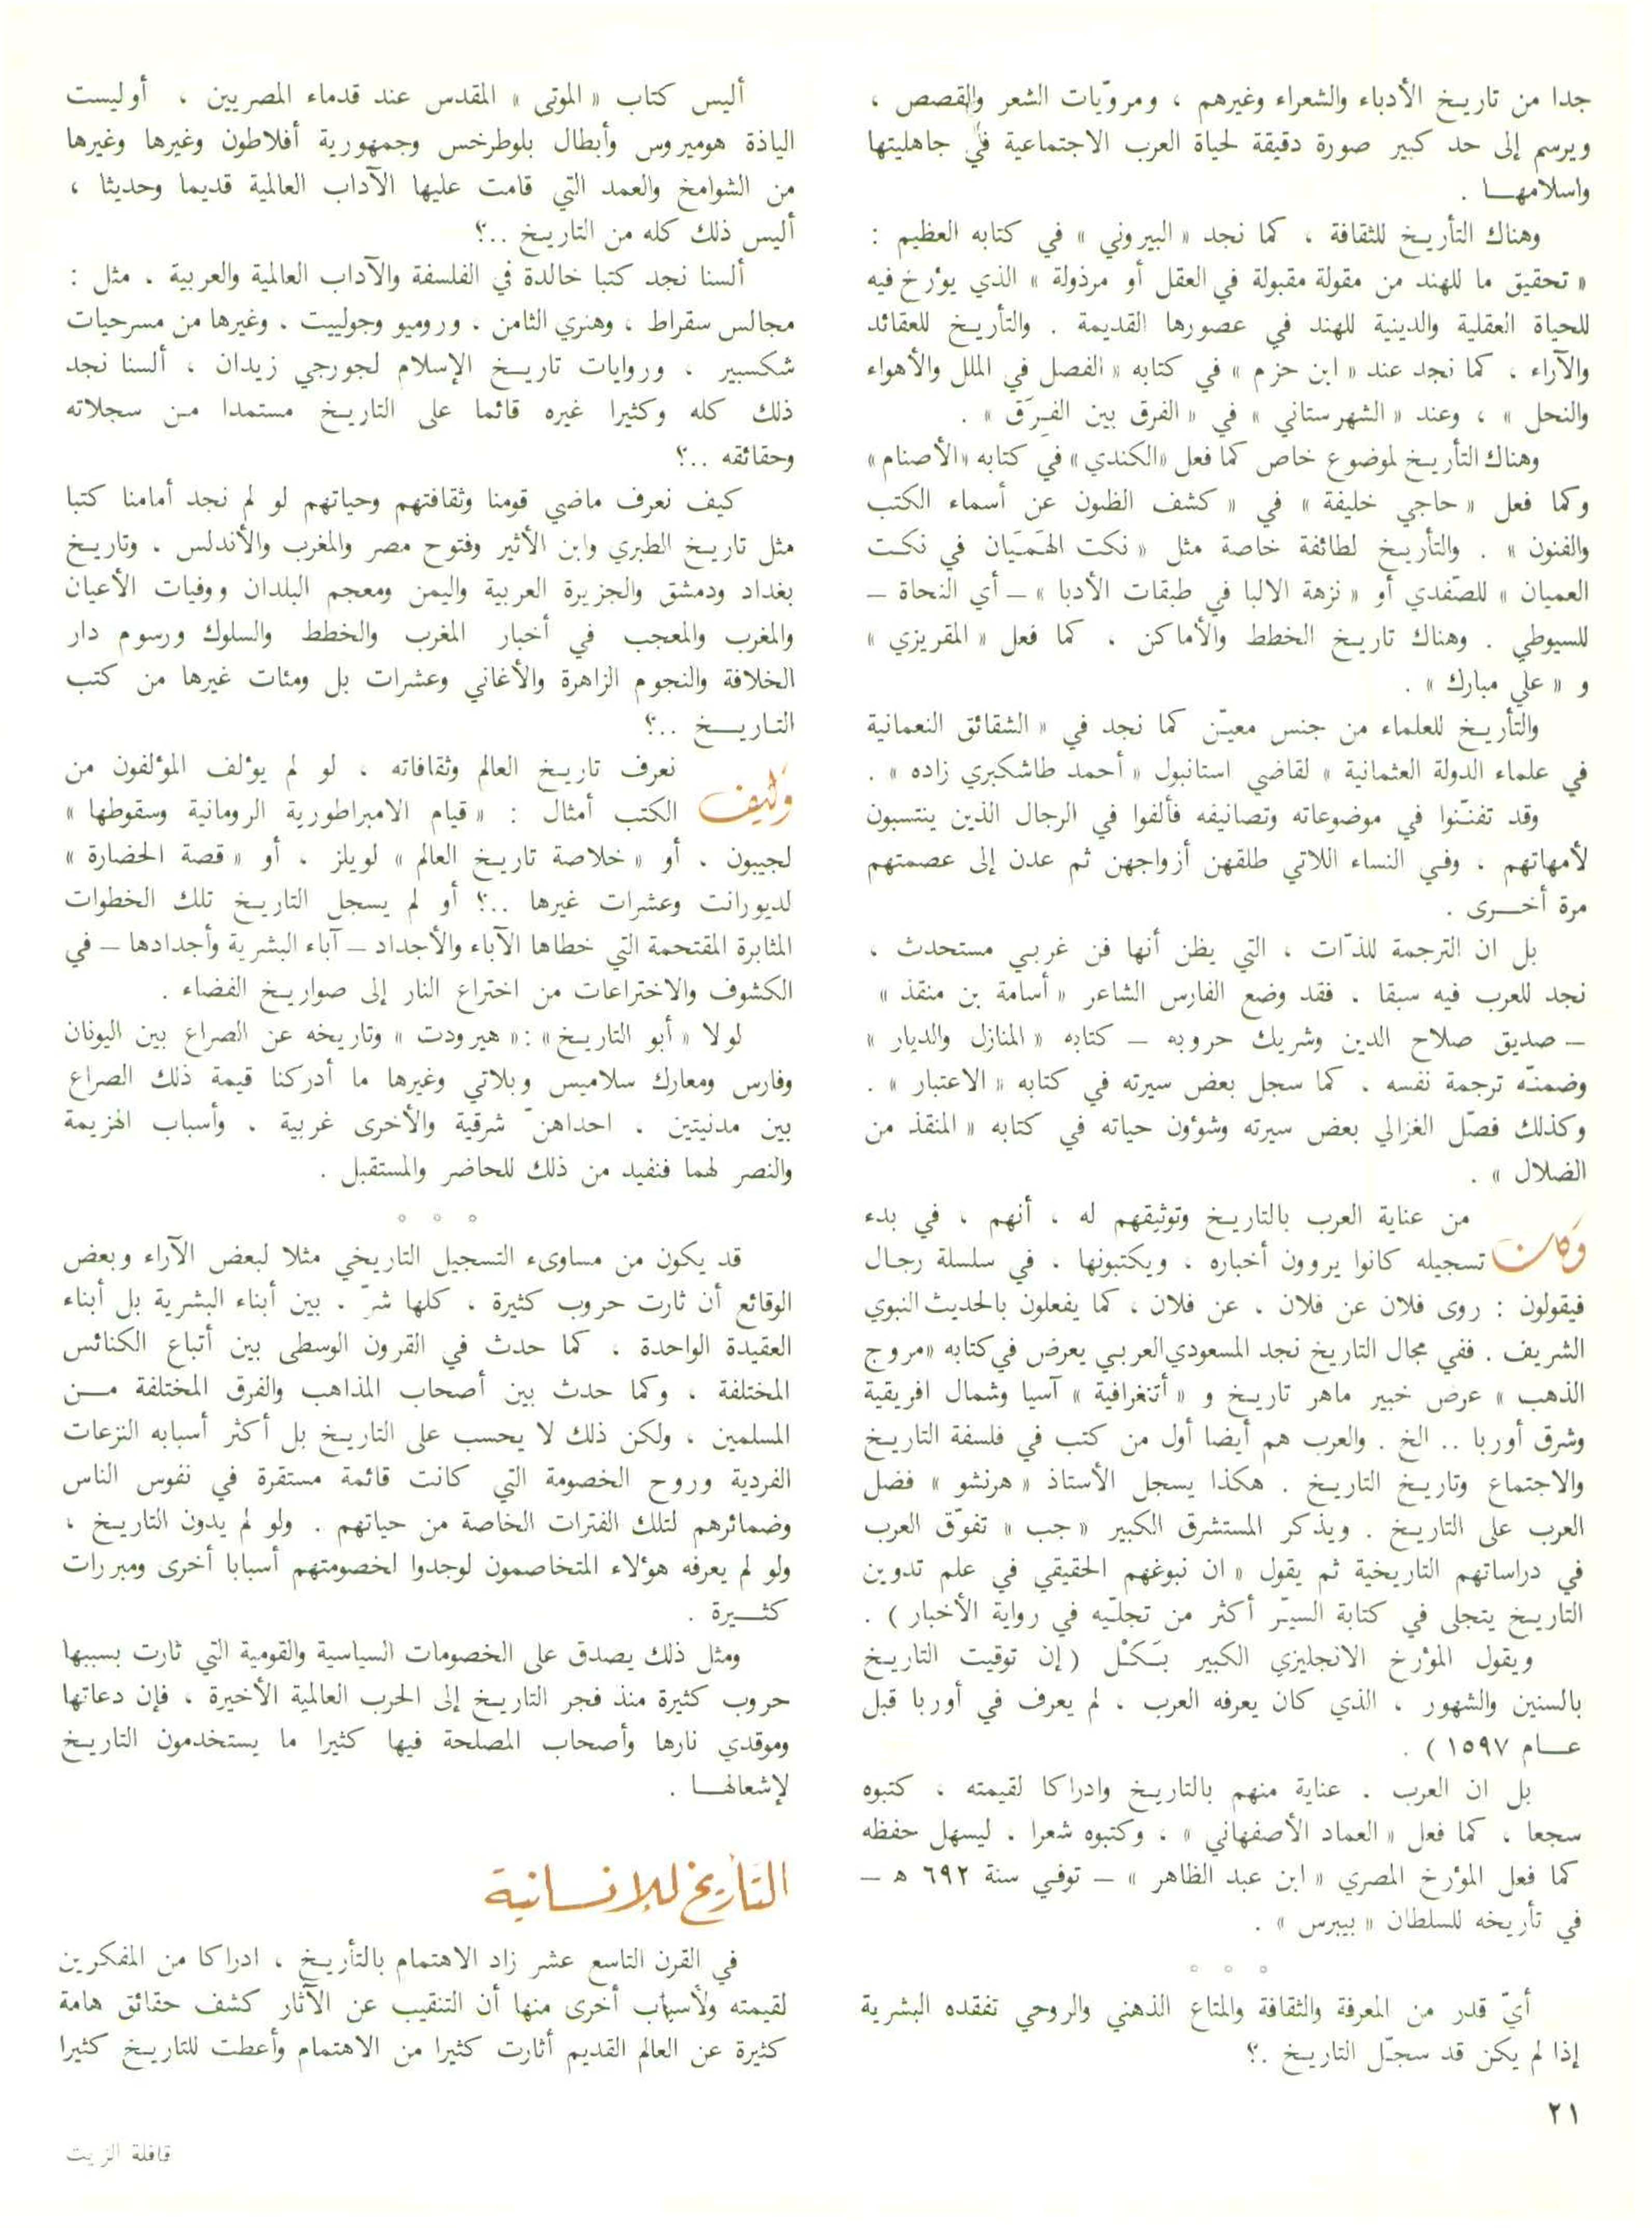 جدا من تاريخ الأدباء والشعراء وغيرهم ، ومرويّات الشعر والقصص ،
ويرسم إلى حد كبير صورة دقيقة لحياة العرب الاجتماعية في جاهليتها
واسلامهـا .
وهناك التأريخ للثقافة ، كما نجد « البيروني » في كتابه العظيم :
« تحقيق ما للهند من مقولة مقبولة في العقل أو مرذولة » الذي يؤرخ فيه
للحياة العقلية والدينية للهند في عصورها القديمة . والتأريخ للعقائد
والآراء ، كما نجد عند « ابن حزم » في كتابه « الفصل في الملل والأهواء
والنحل » ، وعند « الشهرستاني » في « الفرق بين الفِرَق » .
وهناك التأريخ لموضوع خاص كما فعل «الكندي» في كتابه «الأصنام»
وكما فعل « حاجي خليفة » في « كشف الظنون عن أسماء الكتب
والفنون » . والتأريخ لطائفة خاصة مثل « نكت الهَمَيَان في نكت
العميان » للصّفدي أو « نزهة الالبا في طبقات الأدبا » – أي النحاة –
للسيوطي . وهناك تاريخ الخطط والأماكن ، كما فعل « المقريزي »
و « علي مبارك » .
والتأريخ للعلماء من جنس معيّن كما نجد في « الشقائق النعمانية
في علماء الدولة العثمانية » لقاضي استانبول « أحمد طاشكبري زاده » .
وقد تفنّنوا في موضوعاته وتصانيفه فألفوا في الرجال الذين ينتسبون
لأمهاتهم ، وفي النساء اللاتي طلقهن أزواجهن ثم عدن إلى عصمتهم
مرة أخـرى .
بل ان الترجمة للذّات ، التي يظن أنها فن غربي مستحدث ،
نجد للعرب فيه سبقا ، فقد وضع الفارس الشاعر « أسامة بن منقذ »
– صديق صلاح الدين وشريك حروبه – كتابه « المنازل والديار »
وضمنّه ترجمة نفسه ، كما سجل بعض سيرته في كتابه « الاعتبار » .
وكذلك فصّل الغزالي بعض سيرته وشؤون حياته في كتابه « المنقذ من
الضلال » .
وَكان من عناية العرب بالتاريخ وتوثيقهم له ، أنهم ، في بدء
تسجيله كانوا يروون أخباره ، ويكتبونها ، في سلسلة رجال
فيقولون : روى فلان عن فلان ، عن فلان ، كما يفعلون بالحديث النبوي
الشريف . ففي مجال التاريخ نجد المسعودي العربي يعرض في كتابه «مروج
الذهب » عرض خبير ماهر تاريخ و « أتنغرافية » آسيا وشمال افريقية
وشرق أوربا .. الخ . والعرب هم أيضا أول من كتب في فلسفة التاريخ
والاجتماع وتاريخ التاريخ . هكذا يسجل الأستاذ « هرنشو » فضل
العرب على التاريخ . ويذكر المستشرق الكبير « جب » تفوّق العرب
في دراساتهم التاريخية ثم يقول « ان نبوغهم الحقيقي في علم تدوين
التاريخ يتجلى في كتابة السيّر أكثر من تجلّيه في رواية الأخبار ) .
ويقول المؤرخ الانجليزي الكبير بَـكْـل ( إن توقيت التاريخ
بالسنين والشهور ، الذي كان يعرفه العرب ، لم يعرف في أوربا قبل
عـام ١٥٩٧ ) .
بل ان العرب . عناية منهم بالتاريخ وادراكا لقيمته ، كتبوه
سجعا ، كما فعل « العماد الأصفهاني » ، وكتبوه شعرا ، ليسهل حفظه
كما فعل المؤرخ المصري « ابن عبد الظاهر » – توفي سنة ٦٩٢ هـ –
في تأريخه للسلطان « بيبرس » .
° ° °
أيّ قدر من المعرفة والثقافة والمتاع الذهني والروحي تفقده البشرية
إذا لم يكن قد سجّل التاريخ .؟
أليس كتاب « الموتى » المقدس عند قدماء المصريين ، أوليست
الياذة هوميروس وأبطال بلوطرخس وجمهورية أفلاطون وغيرها وغيرها
من الشوامخ والعمد التي قامت عليها الآداب العالمية قديما وحديثا ،
أليس ذلك كله من التاريخ ..؟
ألسنا نجد كتبا خالدة في الفلسفة والآداب العالمية والعربية . مثل :
مجالس سقراط ، وهنري الثامن ، وروميو وجولييت ، وغيرها من مسرحيات
شكسبير ، وروايات تاريخ الإسلام لجورجي زيدان ، ألسنا نجد
ذلك كله وكثيرا غيره قائما على التاريخ مستمدا من سجلاته
وحقائقه ..؟
كيف نعرف ماضي قومنا وثقافتهم وحياتهم لو لم نجد أمامنا كتبا
مثل تاريخ الطبري وابن الأثير وفتوح مصر والمغرب والأندلس ، وتاريخ
بغداد ودمشق والجزيرة العربية واليمن ومعجم البلدان ووفيات الأعيان
والمغرب والمعجب في أخبار المغرب والخطط والسلوك ورسوم دار
الخلافة والنجوم الزاهرة والأغاني وعشرات بل ومئات غيرها من كتب
التاريـخ ..؟
وَكيف نعرف تاريخ العالم وثقافاته ، لو لم يؤلف المؤلفون من
الكتب أمثال : « قيام الامبراطورية الرومانية وسقوطها »
لجيبون ، أو « خلاصة تاريخ العالم » لويلز ، أو « قصة الحضارة »
لديورانت وعشرات غيرها ..؟ أو لم يسجل التاريخ تلك الخطوات
المثابرة المقتحمة التي خطاها الآباء والأجداد – آباء البشرية وأجدادها – في
الكشوف والاختراعات من اختراع النار إلى صواريخ الفضاء .
لولا « أبو التاريخ» :« هيرودت » وتاريخه عن الصراع بين اليونان
وفارس ومعارك سلاميس وبلاتي وغيرها ما أدركنا قيمة ذلك الصراع
بين مدنيتين ، احداهنّ شرقية والأخرى غربية ، وأسباب الهزيمة
والنصر لهما فنفيد من ذلك للحاضر والمستقبل .
° ° °
قد يكون من مساوىء التسجيل التاريخي مثلا لبعض الآراء وبعض
الوقائع أن ثارت حروب كثيرة ، كلها شرّ ، بين أبناء البشرية بل أبناء
العقيدة الواحدة ، كما حدث في القرون الوسطى بين أتباع الكنائس
المختلفة ، وكما حدث بين أصحاب المذاهب والفرق المختلفة مـن
المسلمين ، ولكن ذلك لا يحسب على التاريخ بل أكثر أسبابه النزعات
الفردية وروح الخصومة التي كانت قائمة مستقرة في نفوس الناس
وضمائرهم لتلك الفترات الخاصة من حياتهم . ولو لم يدون التاريخ ،
ولو لم يعرفه هؤلاء المتخاصمون لوجدوا لخصومتهم أسبابا أخرى ومبررات
كثـيرة .
ومثل ذلك يصدق على الخصومات السياسية والقومية التي ثارت بسببها
حروب كثيرة منذ فجر التاريخ إلى الحرب العالمية الأخيرة ، فإن دعاتها
وموقدي نارها وأصحاب المصلحة فيها كثيرا ما يستخدمون التاريخ
لإشعالهـا .
التأريخ للإنسانية
في القرن التاسع عشر زاد الاهتمام بالتأريخ ، ادراكا من المفكرين
لقيمته ولأسباب أخرى منها أن التنقيب عن الآثار كشف حقائق هامة
كثيرة عن العالم القديم أثارت كثيرا من الاهتمام وأعطت للتاريخ كثيرا
٢١
قافلة الزيت